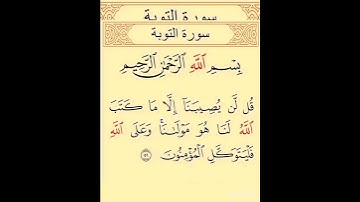 سورة التوبة
سورة التوبة
بِسْمِ اللَّهِ الرَّحْمَٰنِ الرَّحِيمِ
قُل لَّن يُصِيبَنَا إِلَّا مَا كَتَبَ
اللَّهُ لَنَا هُوَ مَوْلَانَا وَعَلَى اللَّهِ
فَلْيَتَوَكَّلِ الْمُؤْمِنُونَ ٥١